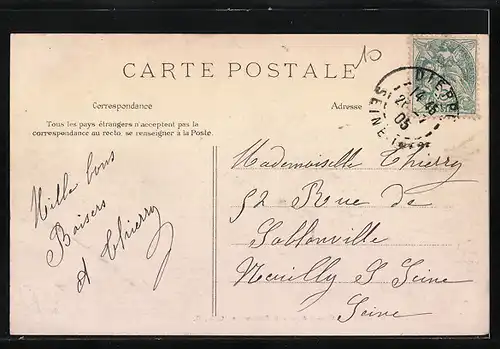 CARTE POSTALE
Correspondance
Tous les pays étrangers n'acceptent pas la
correspondance au recto, se renseigner à la Poste.
Mille bons
Baisers
A Thierry
Adresse
DIEPPE
SEINE-INFRE
Mademoiselle Thierry
52 Rue de
Sablonville
Neuilly S Seine
Seine